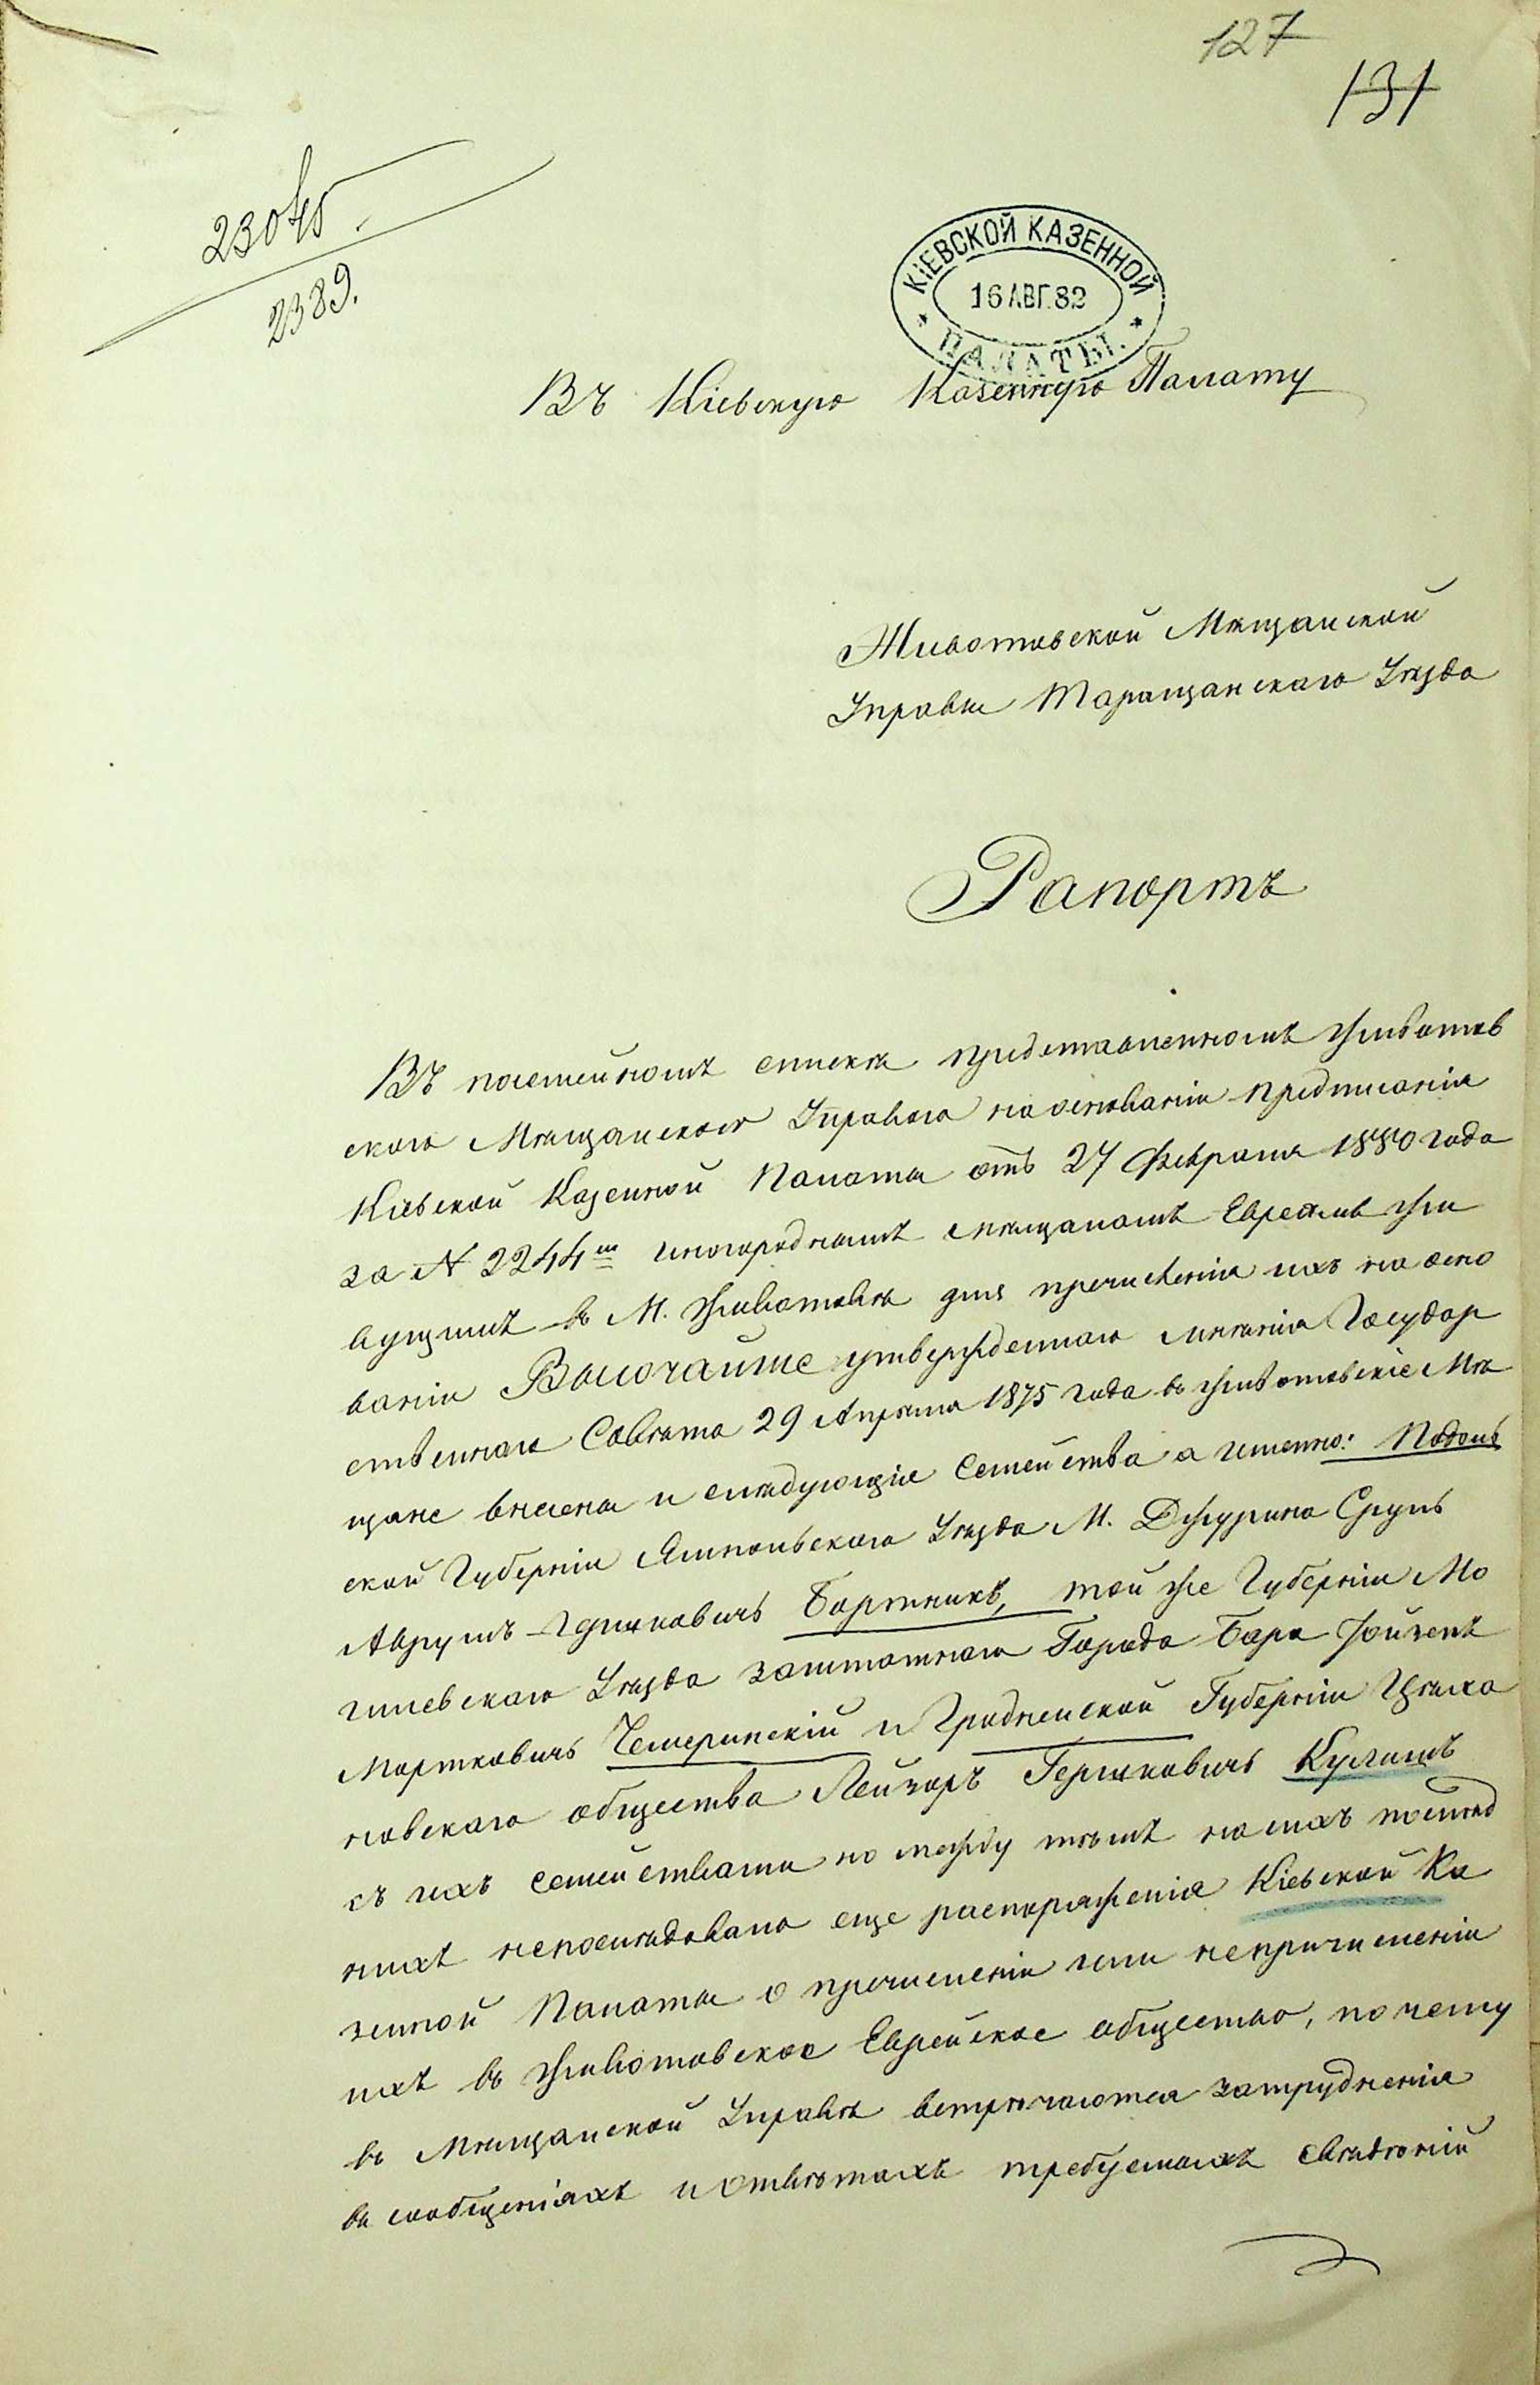 127
131
2389.
КІЕВСКОЙ КАЗЕННОЙ
16 АВГ. 82
ПАЛАТЫ.
Въ Кіевскую Казенную Палату
Животовской Мѣщанской
Управы Таращанскаго Уѣзда
Рапортъ
Въ посемейномъ спискѣ представленномъ Животов
скою Мѣщанскою Управою на основаніи предписанія
Кіевской Казенной Палаты отъ 27 Февраля 1880 года
за № 2244 иногороднымъ мѣщанамъ Евреямъ жи
вущимъ въ М. Животовкѣ для причисленія ихъ на осно
ваніи Высочайше утвержденнаго мнѣнія Государ
ственнаго Совѣта 29 Апрѣля 1875 года въ Животовскіе Мѣ
щане внесены и слѣдующіе Семейства а именно: Подоль
ской Губерніи Ямпольскаго Уѣзда М. Джурина Сруль
Аврумъ Ицковичъ Бортникъ, той же Губерніи Мо
гилевскаго Уѣзда заштатнаго Города Бара
Мортковичъ Чемеринскій и Гродненской Губерніи Цѣха
новскаго общества Лейзоръ Гершковичъ Кулишъ
съ ихъ семействами но между тѣмъ на ихъ послѣд
нихъ непослѣдовало еще распоряженія Кіевской Ка
зенной Палаты о причисленіи или непричисленіи
ихъ въ Животовское Еврейское общество, по чему
въ Мѣщанской Управѣ встрѣчаются затрудненія
въ сообщеніяхъ и отвѣтахъ требуемыхъ свѣдѣній